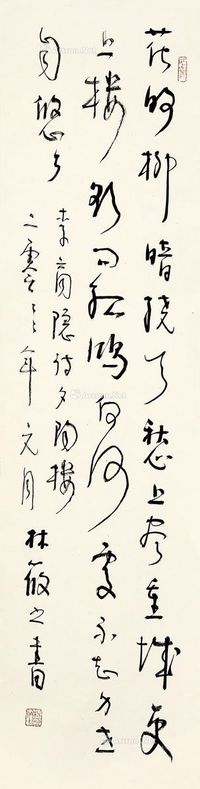 花明柳暗绕天愁上尽重城更
上楼欲问孤鸿向何处不知身世
自悠悠
李商隐诗夕阳楼
二零一二年元月 林筱之书